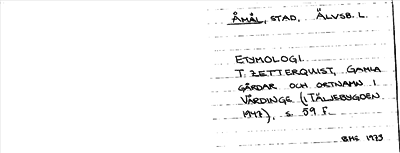 ÅMÅL, STAD, ÄLVSB. L.
ETYMOLOGI.
T. ZETTERQUIST, GAMLA
GÅRDAR OCH ORTNAMN I
VÅRDINGE (I TÄLJEBYGDEN
1947), s. 59 f.
BHS 1973